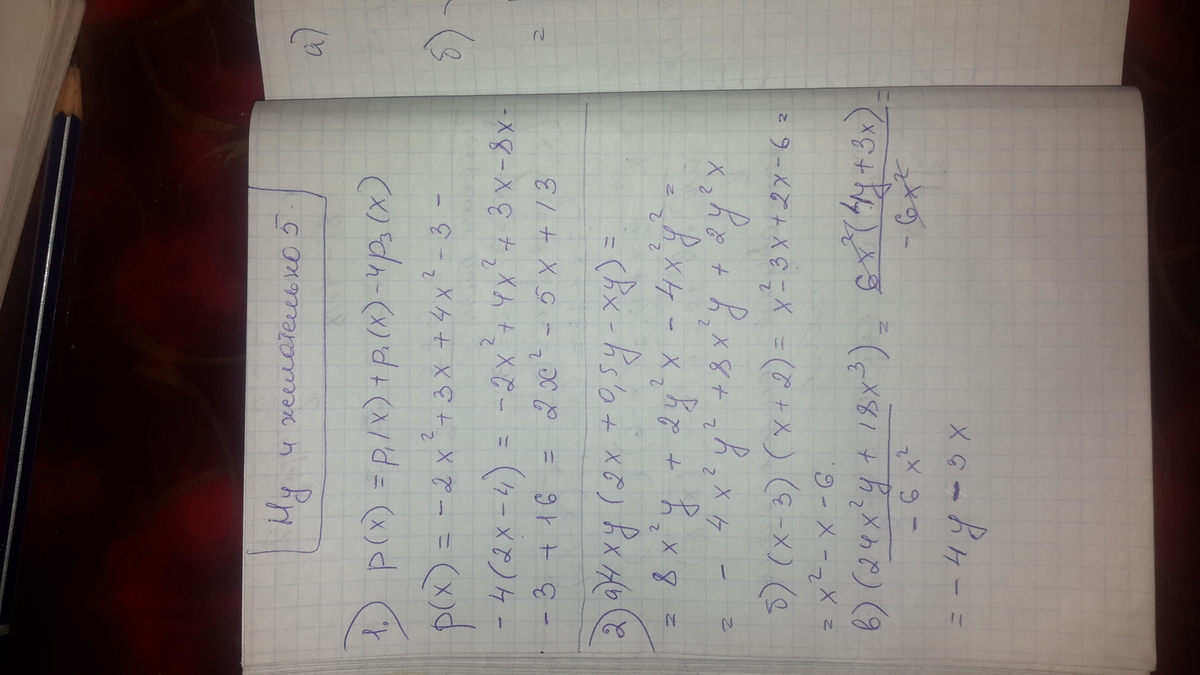 Ну и желательно 5.
1.) p(x) = p₁(x) + p₂(x) - 4p₃(x)
p(x) = - 2x² + 3x + 4x² - 3 -
- 4(2x - 4) = - 2x² + 4x² + 3x - 8x -
- 3 + 16 = 2x² - 5x + 13
2) а) 4xy(2x + 0,5y - xy) =
= 8x²y + 2y²x - 4x²y² =
= - 4x²y² + 8x²y + 2y²x
б) (x - 3)(x + 2) = x² - 3x + 2x - 6 =
= x² - x - 6.
в) (24x²y + 18x³) / - 6x² = 6x²(4y + 3x) / - 6x² =
= - 4y - 3x
а)
б)
=